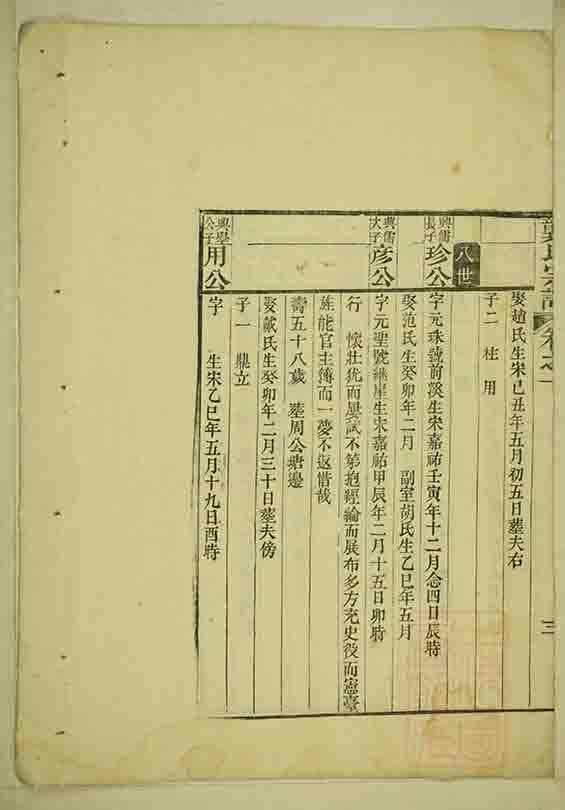 氏宗譜 卷之一
三
娶趙氏生宋己丑年五月初五日塟夫右
子二 柱 用
八世
興儒長子 珍公
字元珠號前溪生宋嘉祐壬寅年十二月念四日辰時
娶范氏生癸卯年二月 副室胡氏生乙巳年五月
興儒次子 彥公
字元聖號繼崖生宋嘉祐甲辰年二月十五日卯時
行 懷壯犹而屢試不第抱經綸而展布多方充史役而憲臺
旌能官主簿而一夢不返惜哉
壽五十八歲 塟周公塘邊
娶戴氏生癸卯年二月三十日塟夫傍
子一 鼎立
興學公子 用公
字 生宋乙巳年五月十九日酉時